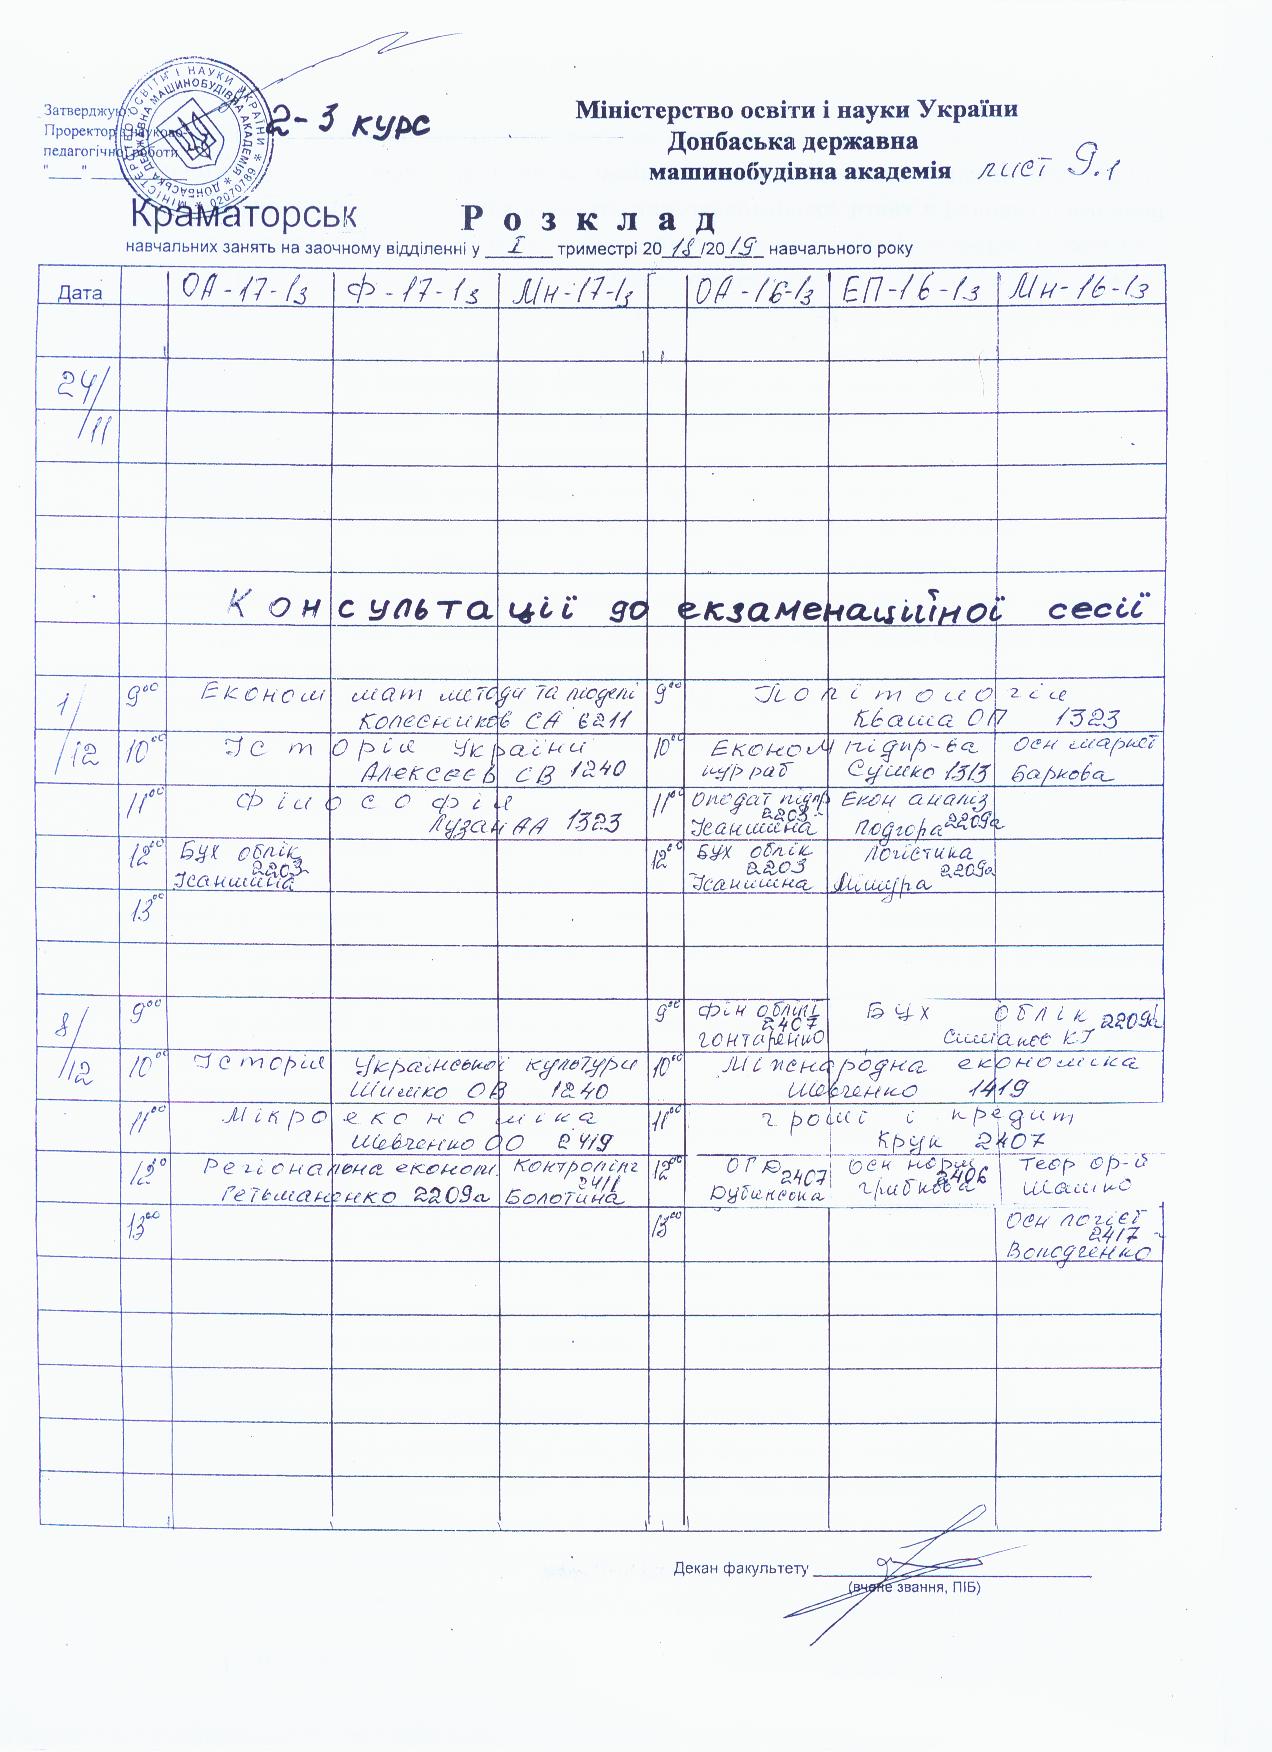 Затверджую:
Проректор з науково-
педагогічної роботи
"____" ____________
МІНІСТЕРСТВО ОСВІТИ І НАУКИ УКРАЇНИ * 02070789 *
ДОНБАСЬКА ДЕРЖАВНА МАШИНОБУДІВНА АКАДЕМІЯ *
2-3 курс
Міністерство освіти і науки України
Донбаська державна
машинобудівна академія лист 9.1
Краматорськ
Розклад
навчальних занять на заочному відділенні у I триместрі 2018/2019 навчального року
Дата ОА-17-1з Ф-17-1з Мн-17-1з ОА-16-1з ЕП-16-1з Мн-16-1з
24/
/11
Консультації до екзаменаційної сесії
1/ 9⁰⁰ Економ мат методи та моделі 9⁰⁰ Політологія
Колесников СА 6211 Кваша ОП 1323
/12 10⁰⁰ Історія України 10⁰⁰ Економ підпр-ва Осн маркет
Алексеєв СВ 1240 кур раб Сушко 1313 Баркова
11⁰⁰ Філософія 11⁰⁰ Оподат підпр Екон аналіз
Лузан АА 1323 2203 Ісаншина Подгора 2209а
12⁰⁰ Бух облік 12⁰⁰ Бух облік Логістика
2203 2203 2209а
Ісаншина Ісаншина Мішура
13⁰⁰
8/ 9⁰⁰ 9⁰⁰ Фін облік Бух облік 2209а
2407
Гонтаренко
/12 10⁰⁰ Історія Української культури 10⁰⁰ Міжнародна економіка
Шимко ОВ 1240 Шевченко 1419
11⁰⁰ Мікроекономіка 11⁰⁰ Гроші і кредит
Шевченко ОО 2419 Крук 2407
12⁰⁰ Регіональна економ Контролінг 12⁰⁰ Осн норм Теор ор-й
2411 2407 2406
Гетьманенко 2209а Болотина Грибкова Шашко
13⁰⁰ 13⁰⁰ Осн логіст
2417
Володченко
Декан факультету
(вчене звання, ПІБ)